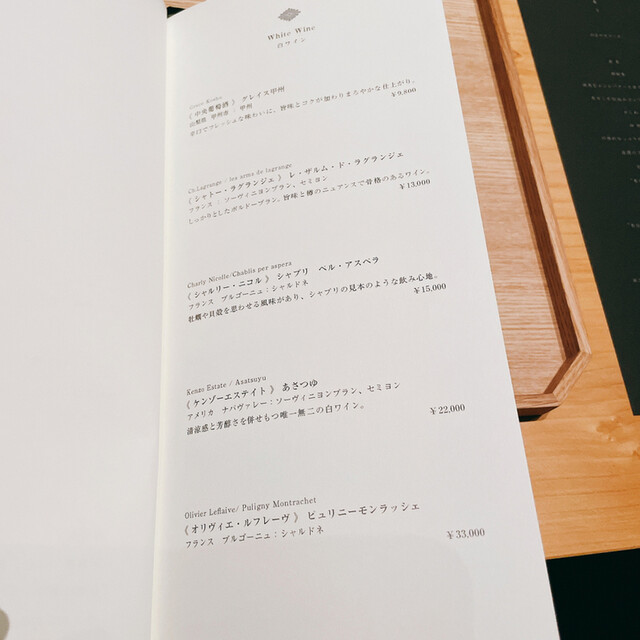 White Wine
白ワイン
Grace Koshu
《 中央葡萄酒 》 グレイス甲州
山梨県 甲州市 : 甲州
辛口でフレッシュな味わいに、旨味とコクが加わりまろやかな仕上がり。
¥9,800
Ch.Lagrange / les arms de lagrange
《 シャトー・ラグランジュ 》 レ・ザルム・ド・ラグランジュ
フランス : ソーヴィニヨンブラン、セミヨン
しっかりとしたボルドーブラン。旨味と樽のニュアンスで骨格のあるワイン。
¥13,000
Charly Nicolle/Chablis per aspera
《 シャルリー・ニコル 》 シャブリ ペル・アスペラ
フランス ブルゴーニュ : シャルドネ
牡蠣や貝殻を思わせる風味があり、シャブリの見本のような飲み心地。
¥15,000
Kenzo Estate / Asatsuyu
《 ケンゾーエステイト 》 あさつゆ
アメリカ ナパヴァレー : ソーヴィニヨンブラン、セミヨン
清涼感と芳醇さを併せもつ唯一無二の白ワイン。
¥22,000
Olivier Leflaive/ Puligny Montrachet
《 オリヴィエ・ルフレーヴ 》 ピュリニーモンラッシェ
フランス ブルゴーニュ : シャルドネ
¥33,000